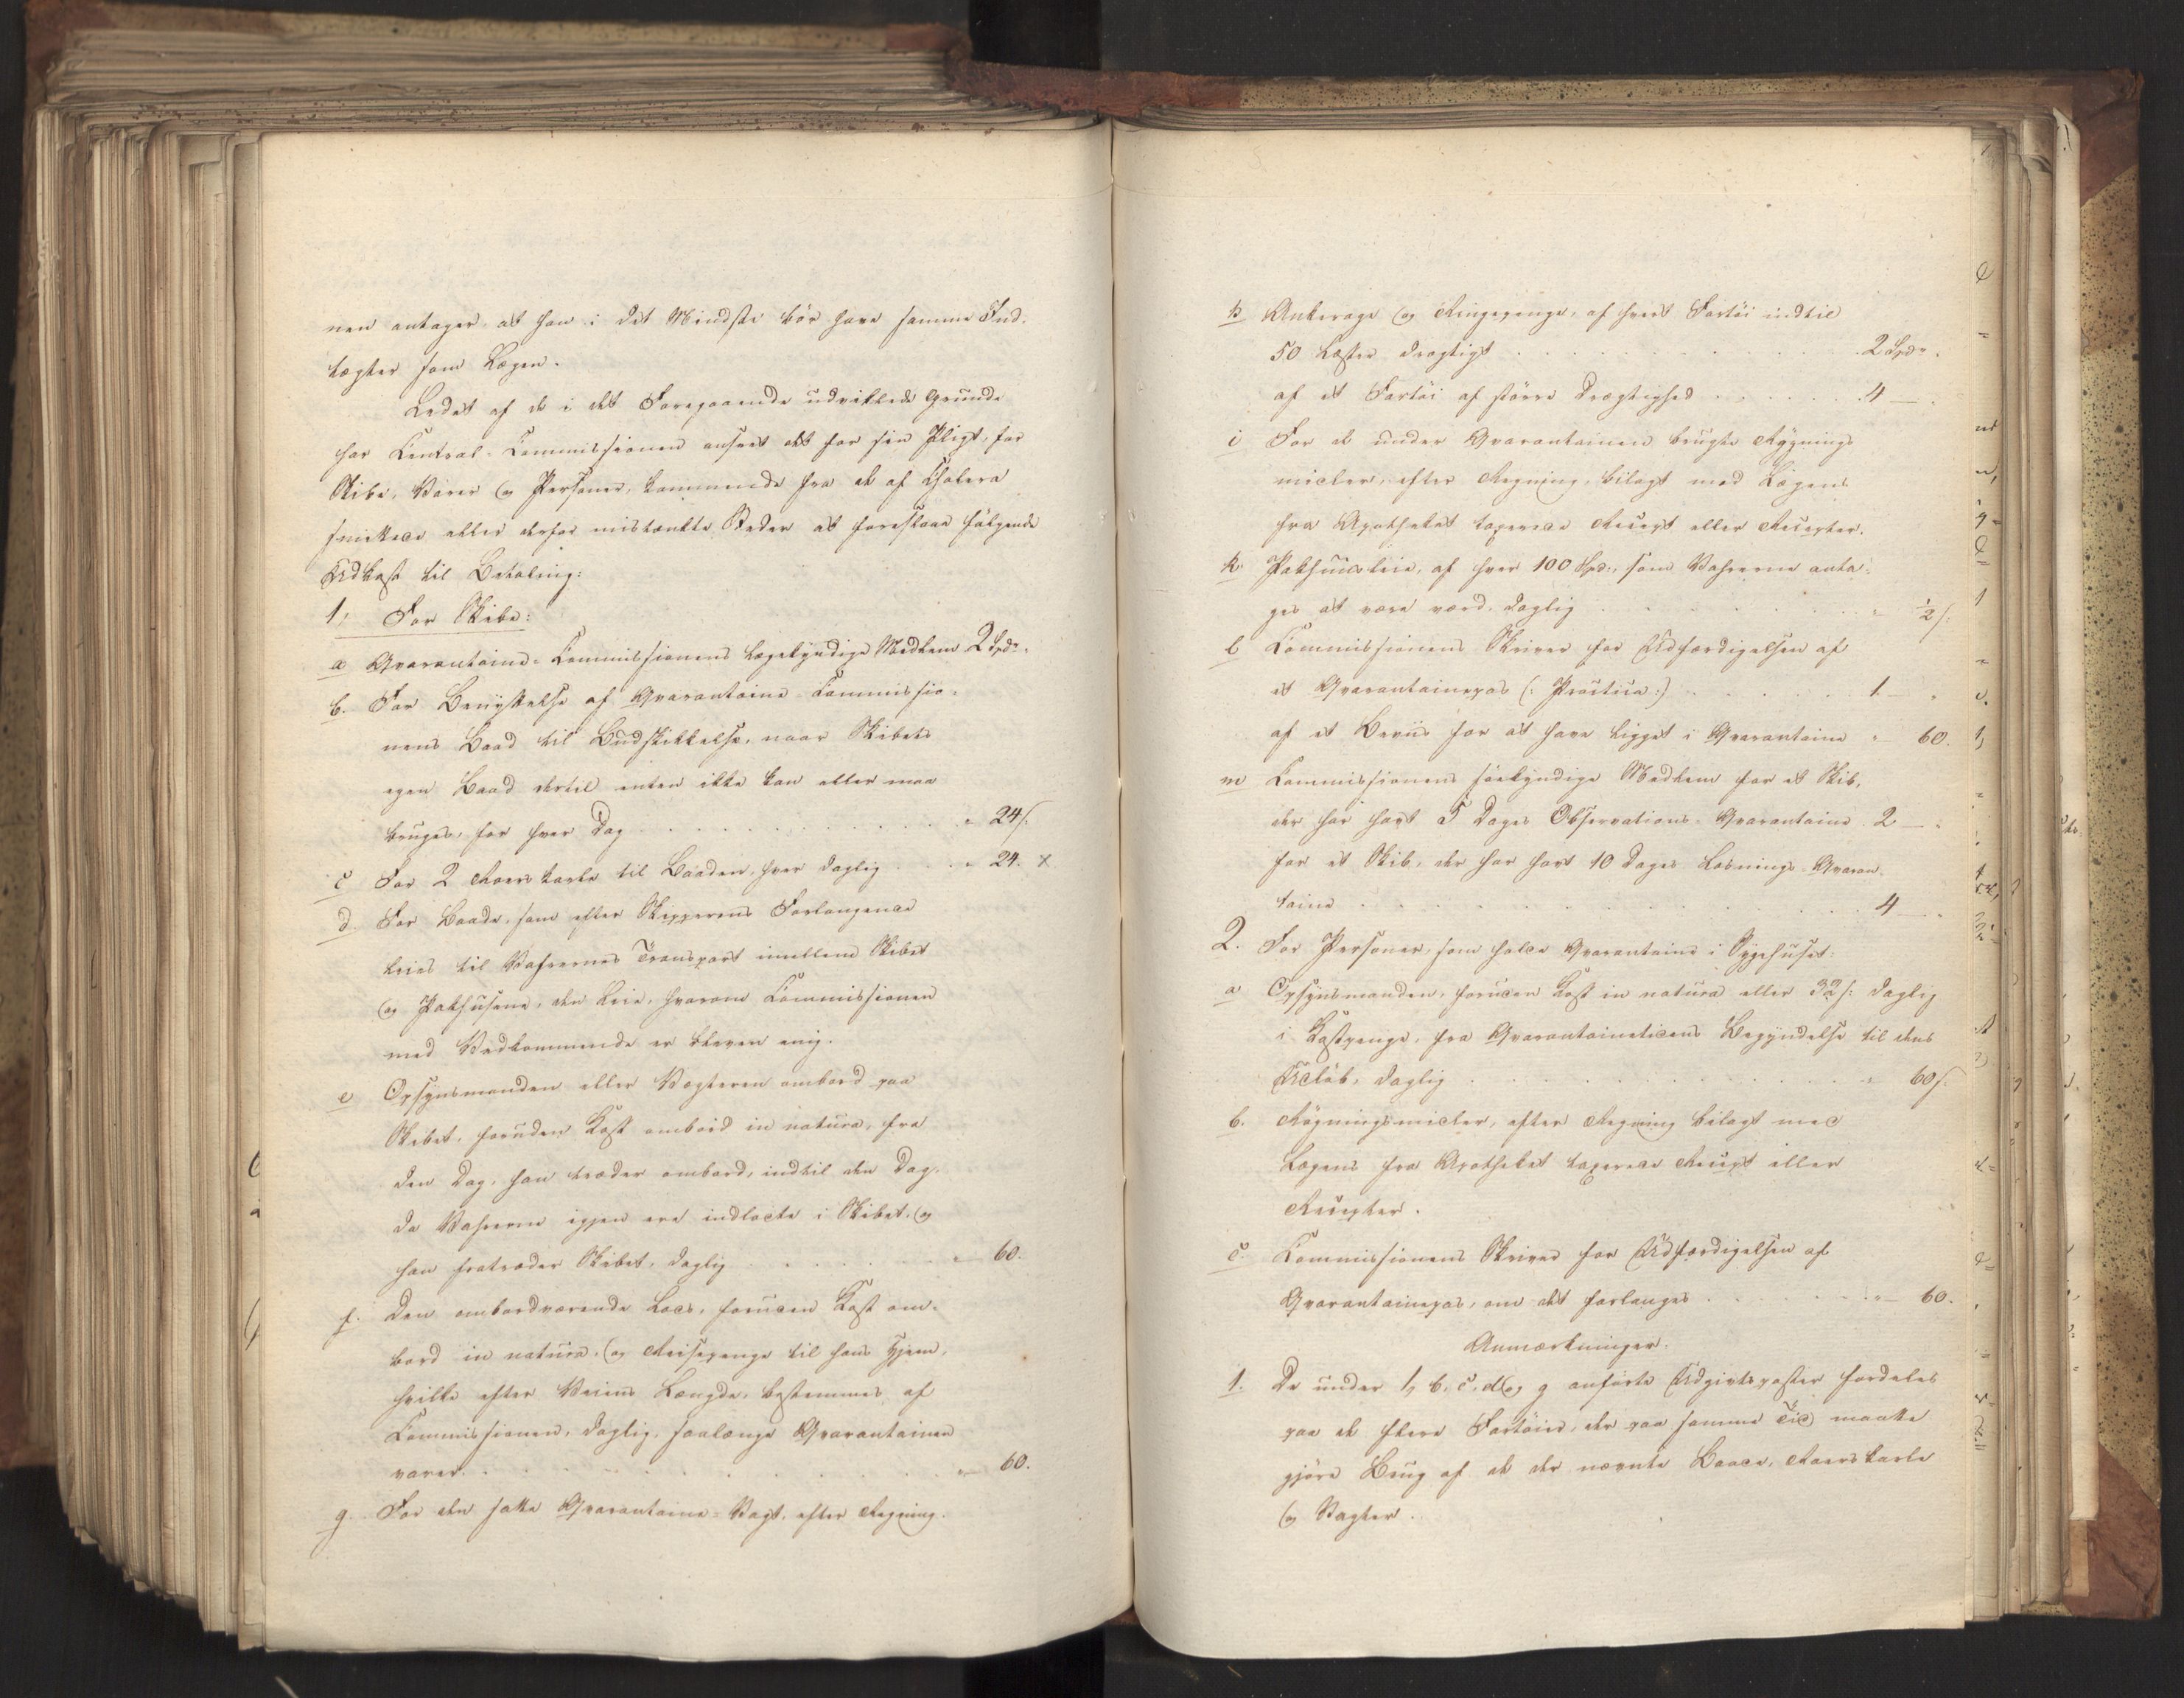 nen antager, at han i det Mindste bör have samme Ind-
tægter som Lægen.
Ledet af de i det Foregaaende udviklede Grunde
har Central-Commissionen anseet det for sin Pligt, for
Skibe, Varer og Personer, kommende fra de af Cholera
smittede eller derfor mistænkte Steder at foreslaae fölgende
Udkast til Betaling:
1, For Skibe:
a Qvarantaine-Commissionens lægekyndige Medlem 2 Spdr.
b. For Benyttelse af Qvarantaine-Commissio-
nens Baad til Budskikkelse, naar Skibets
egen Baad dertil enten ikke kan eller maa
bruges, for hver Dag . . . " 24 s.
c For 2 Roerskarle til Baaden, hver daglig . . " 24. x
d. For Baade, som efter Skipperens Forlangende
leies til Vahrernes Transport imellem Skibet
og Pakhusene, den Leie, hvorom Commissionen
med Vedkommende er bleven enig.
e Opsynsmanden eller Vægteren ombord paa
Skibet, foruden Kost ombord in natura, fra
den Dag, han træder ombord, indtil den Dag,
da Vahrerne igjen ere indladte i Skibet, og
han fratræder Skibet, daglig . . . " 60.
f. Den ombordværende Lods, foruden Kost om-
bord in natura, og Reisepenge til hans Hjem,
hvilke efter Veiens Længde, bestemmes af
Commissionen, daglig, saalænge Qvarantainen
varer. . . . " 60.
g. For den satte Qvarantaine-Vagt, efter Regning.
h Ankerage og Ringepenge, af hvert Fartöi indtil
50 Læsters drægtigt . . . 2 Spdr.
af et Fartöi af större Drægtighed . . . 4 — .
i For de under Qvarantainen brugte Rygnings
midler, efter Regning, bilagt med Lægens
fra Apotheket taxerede Recept eller Recepter.
k. Pakhuusleie, af hver 100 Spd:, som Vahrerne anta-
ges at være værd, daglig . . . " ½ s:
l Commissionens Skriver for Udfærdigelsen af
et Qvarantainepas (: Practica :) . . . 1. — "
af et Beviis for at have ligget i Qvarantaine " 60.
m Commissionens söekyndige Medlem for et Skib,
der har havt 5 Dages Observations-Qvarantaine . 2 — .
for et Skib, der har havt 10 Dages Losnings-Qvaran-
taine . . . 4 — .
2. For Personer, som holde Qvarantaine i Sygehuset:
a Opsynsmanden, foruden Kost in natura eller 32 s: daglig
i Kostpenge, fra Qvarantainetidens Begyndelse til dens
Udlöb, daglig . . . " 60 s.
b. Rögningsmidler, efter Regning bilagt med
Lægens fra Apotheket taxerede Recept eller
Recepter.
c. Commissionens Skriver for Udfærdigelsen af
Qvarantainepas, om det forlanges . . . " — 60.
Anmærkninger.
1. De under 1, b, c, d og g anförte Udgivtsposter fordeles
paa de flere Fartöier, der paa samme Tid maatte
gjöre Brug af de der nævnte Baade, Roerskarle
og Vagter.